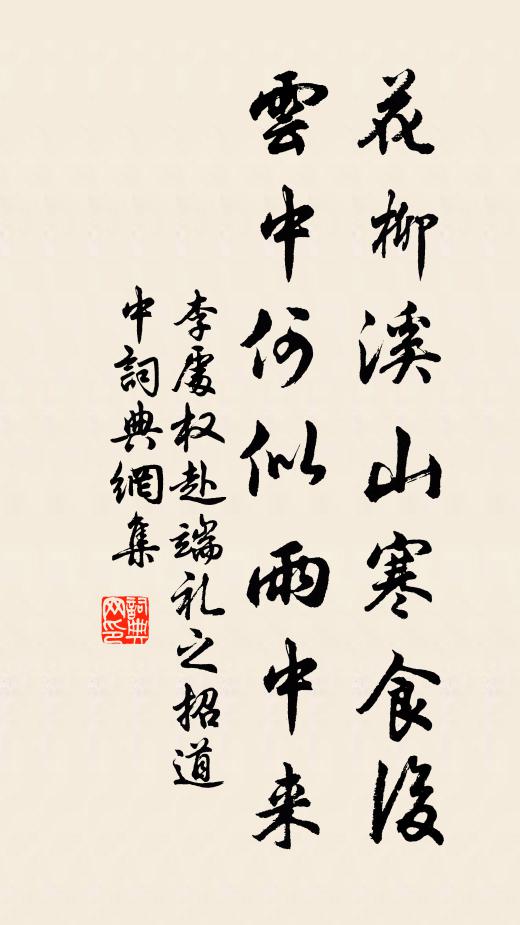 花柳溪山寒食後
雲中何似雨中来
李處权赴端礼之招道
中詞典網集
詞典
网印